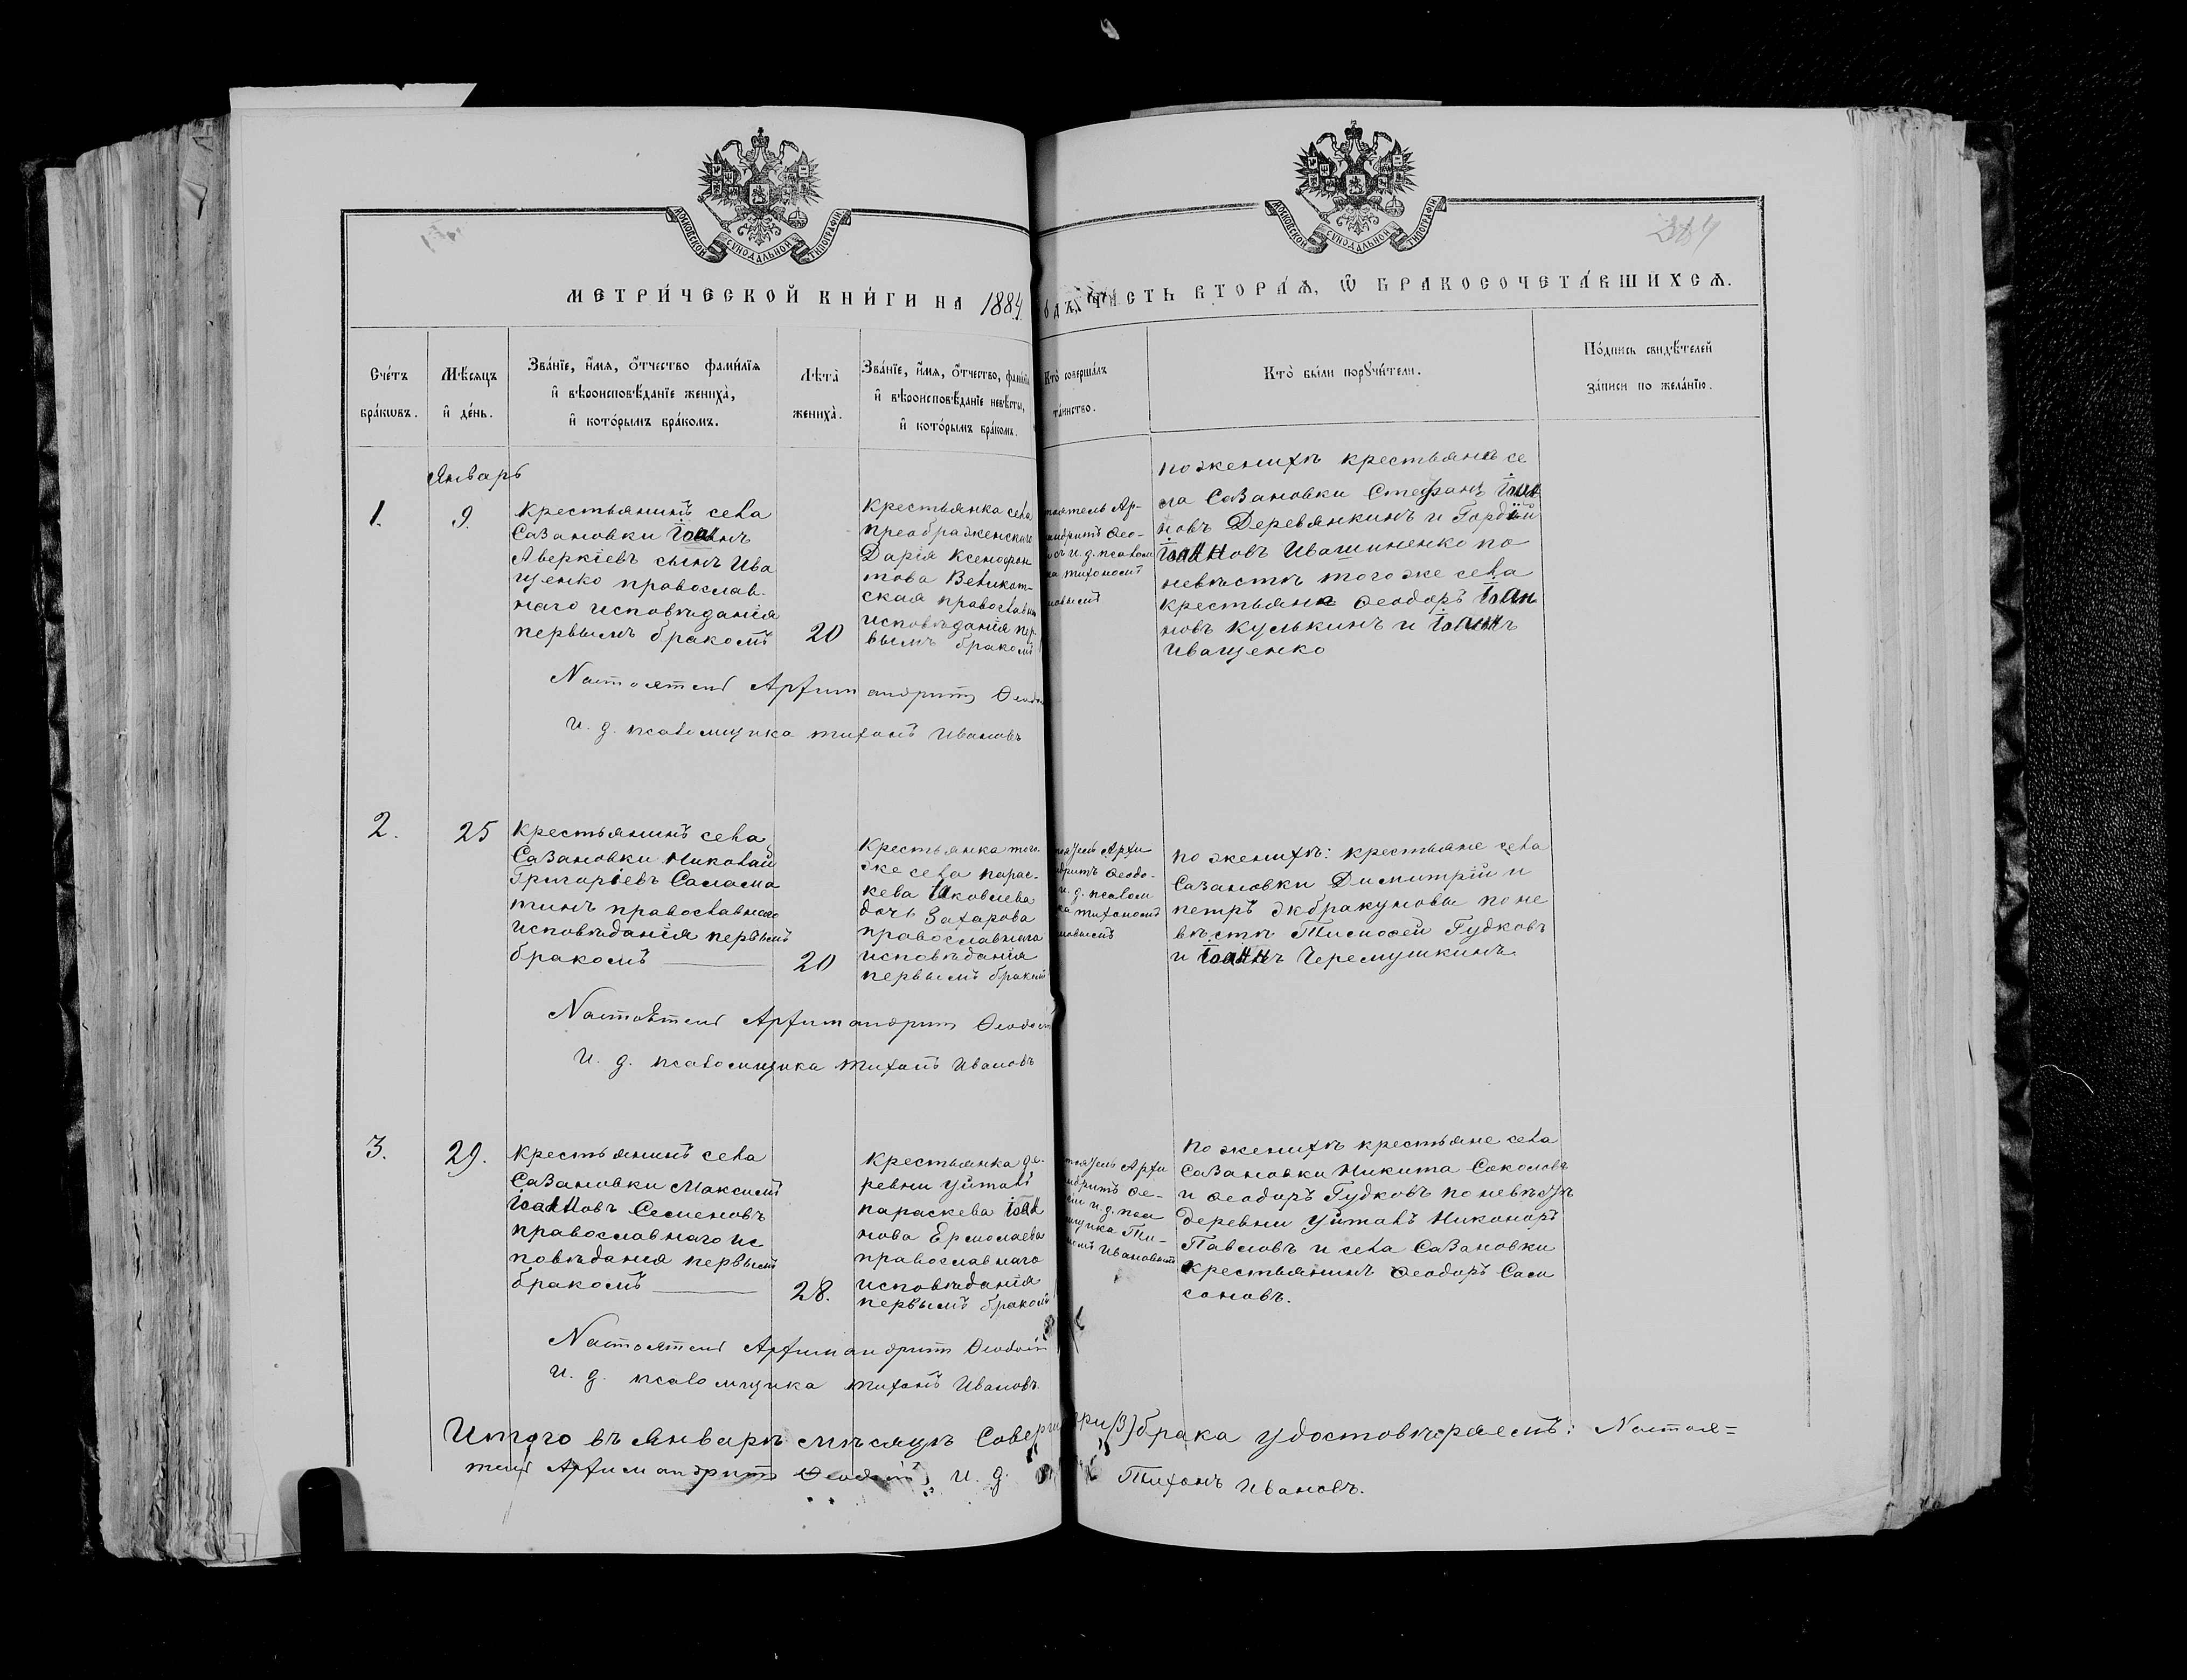 МОСКОВСКОЙ СѴНОДАЛЬНОЙ ТИПОГРАФІИ
МОСКОВСКОЙ СѴНОДАЛЬНОЙ ТИПОГРАФІИ
МЕТРИ́ЧЕСКОЙ КНИ́ГИ НА 1884
ЧА́СТЬ ВТОРА́Ѧ, Ѽ БРАКОСОЧЕТА́ВШИХСѦ.
Сче́тъ
бра́кѡвъ.
Мѣ́сяцъ
и҆ де́нь.
Зва́нїе, и҆́мя, ѻ҆́тчество фами́лїя
и҆ вѣроисповѣ́данїе жениха̀,
и҆ кото́рымъ бра́комъ.
Лѣ́та̀
жениха̀.
Зва́нїе, и҆́мя, ѻ҆́тчество, фами́лїя
и҆ вѣроисповѣ́данїе невѣ́сты,
и҆ кото́рымъ бра́комъ.
Кто̀ соверша́лъ
та́инство.
Кто̀ бы́ли порꙋчи́тели.
По́дпись свидѣ́телей
за́писи по жела́нїю.
Январь
1.
9.
Крестьянинъ села
Сазановки Іоаннъ
Аверкіевъ сынъ Ива
щенко православ-
наго исповѣданія
первымъ бракомъ
20
Крестьянка села
преображенскаго
Дарія Ксенофон
това Великот-
ская православн
исповѣданія пер-
вымъ бракомъ
тоятель Ар-
мандритъ Ѳео-
и. д. псалом
ка тихономъ
новымъ
по женихѣ крестьяне се
ла Сазановки Стефанъ Іоан
новъ Деревянкинъ и Гордій
Іоанновъ Ивашиненко по
невѣстѣ того же села
крестьяне Ѳеодоръ Іоан
новъ Кулькинъ и Іоаннъ
Иващенко
Настоятель Архимандритъ
И. д. псаломщика Тихонъ Ивановъ
2.
25
Крестьянинъ села
Сазановки Николай
Григоріевъ Салама
тинъ православнаго
исповѣданія первымъ
бракомъ
20
Крестьянка того
же села парас-
кева Іаковлева
дочь Захарова
православнаго
исповѣданія
первымъ бракомъ
Архи
дритъ Ѳеодо-
и. д. псалом
ка тихономъ
новымъ
по женихѣ: крестьяне села
Сазановки Димитрій и
петръ Экбракуновы по не
вѣстѣ Тимоѳей Гудковъ
и Іоаннъ Черемушкинъ
Настоятель Архимандритъ Ѳеодосій
И. д. псаломщика Тихонъ Ивановъ
3.
29.
Крестьянинъ села
Сазановки Максимъ
Іоанновъ Семеновъ
православнаго ис
повѣданія первымъ
бракомъ
28.
Крестьянка де-
ревни Уйталъ
параскева Іоан
нова Ермолаева
православнаго
исповѣданія
первымъ бракомъ
Архи
дритъ Ѳе-
и. д. пса
мщика Ти-
Ивановымъ
По женихѣ крестьяне села
Сазановки Никита Соколовъ
и Ѳеодоръ Гудковъ по невѣстѣ
деревни Уйталъ Никоноръ
Павловъ и села Сазановки
крестьянинъ Ѳеодоръ Сам
соновъ.
Настоятель Архимандритъ Ѳеодосій
И. д. псаломщика Тихонъ Ивановъ.
Итого въ Январѣ мѣсяцѣ Соверш три (3) брака удостовѣряемъ: Настоя=
тель Архимандритъ Ѳеодосій, и. д. Тихонъ Ивановъ.